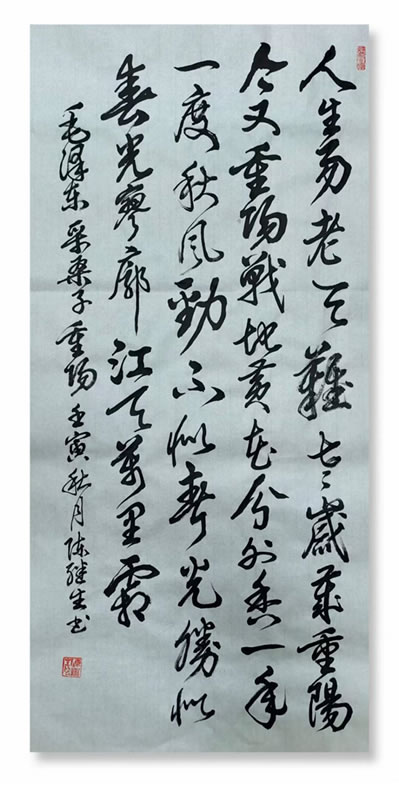 人生易老天難老歲歲重陽
今又重陽戰地黃花分外香一年
一度秋風勁不似春光勝似
春光寥廓江天萬里霜
毛澤东采桑子重陽壬寅秋月陈继生书